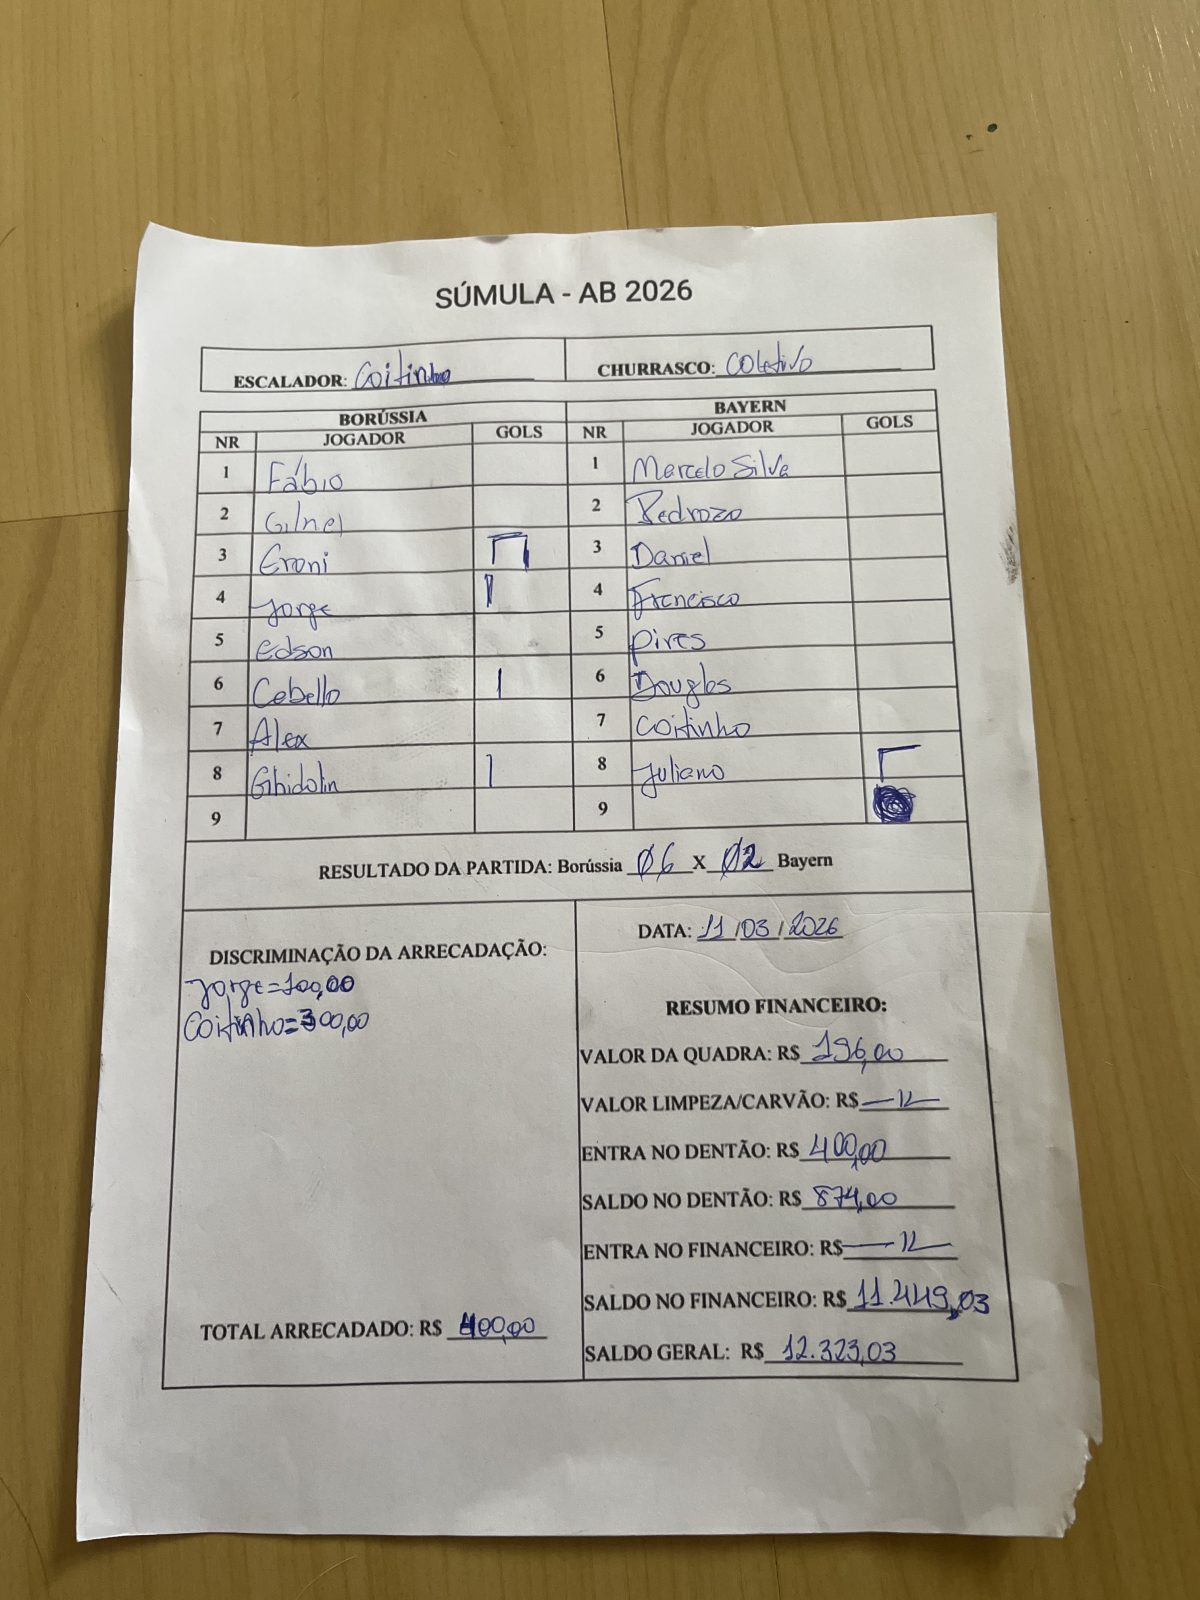 SÚMULA - AB 2026
ESCALADOR: Coitinho CHURRASCO: Coletivo
BORÚSSIA BAYERN
NR JOGADOR GOLS NR JOGADOR GOLS
1 Fábio 1 Marcelo Silva
2 Gilnei 2 Pedrozo
3 Eroni 3 Daniel
4 Jorge 4 Francisco
5 Edson 5 Pires
6 Cabello 6 Douglas
7 Alex 7 Coitinho
8 Ghidolin 8 Juliano
9 9
RESULTADO DA PARTIDA: Borússia 06 X 02 Bayern
DISCRIMINAÇÃO DA ARRECADAÇÃO:
Jorge=100,00
Coitinho=300,00
TOTAL ARRECADADO: R$ 400,00
DATA: 11/03/2026
RESUMO FINANCEIRO:
VALOR DA QUADRA: R$ 196,00
VALOR LIMPEZA/CARVÃO: R$
ENTRA NO DENTÃO: R$ 400,00
SALDO NO DENTÃO: R$ 874,00
ENTRA NO FINANCEIRO: R$
SALDO NO FINANCEIRO: R$ 11.449,03
SALDO GERAL: R$ 12.323,03